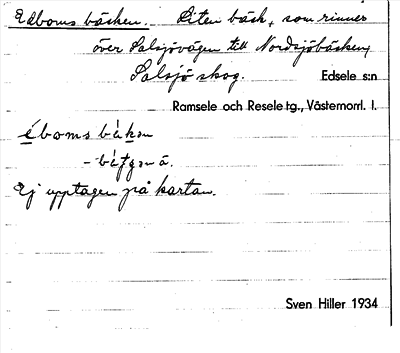 Edboms bäcken. Liten bäck, som rinner
över Salsjövägen till Nordsjöbäcken,
Salsjö skog. Edsele s:n
Ramsele och Resele tg., Västernorrl. l.
éboms bäkən
Ej upptagen på kartan.
Sven Hiller 1934